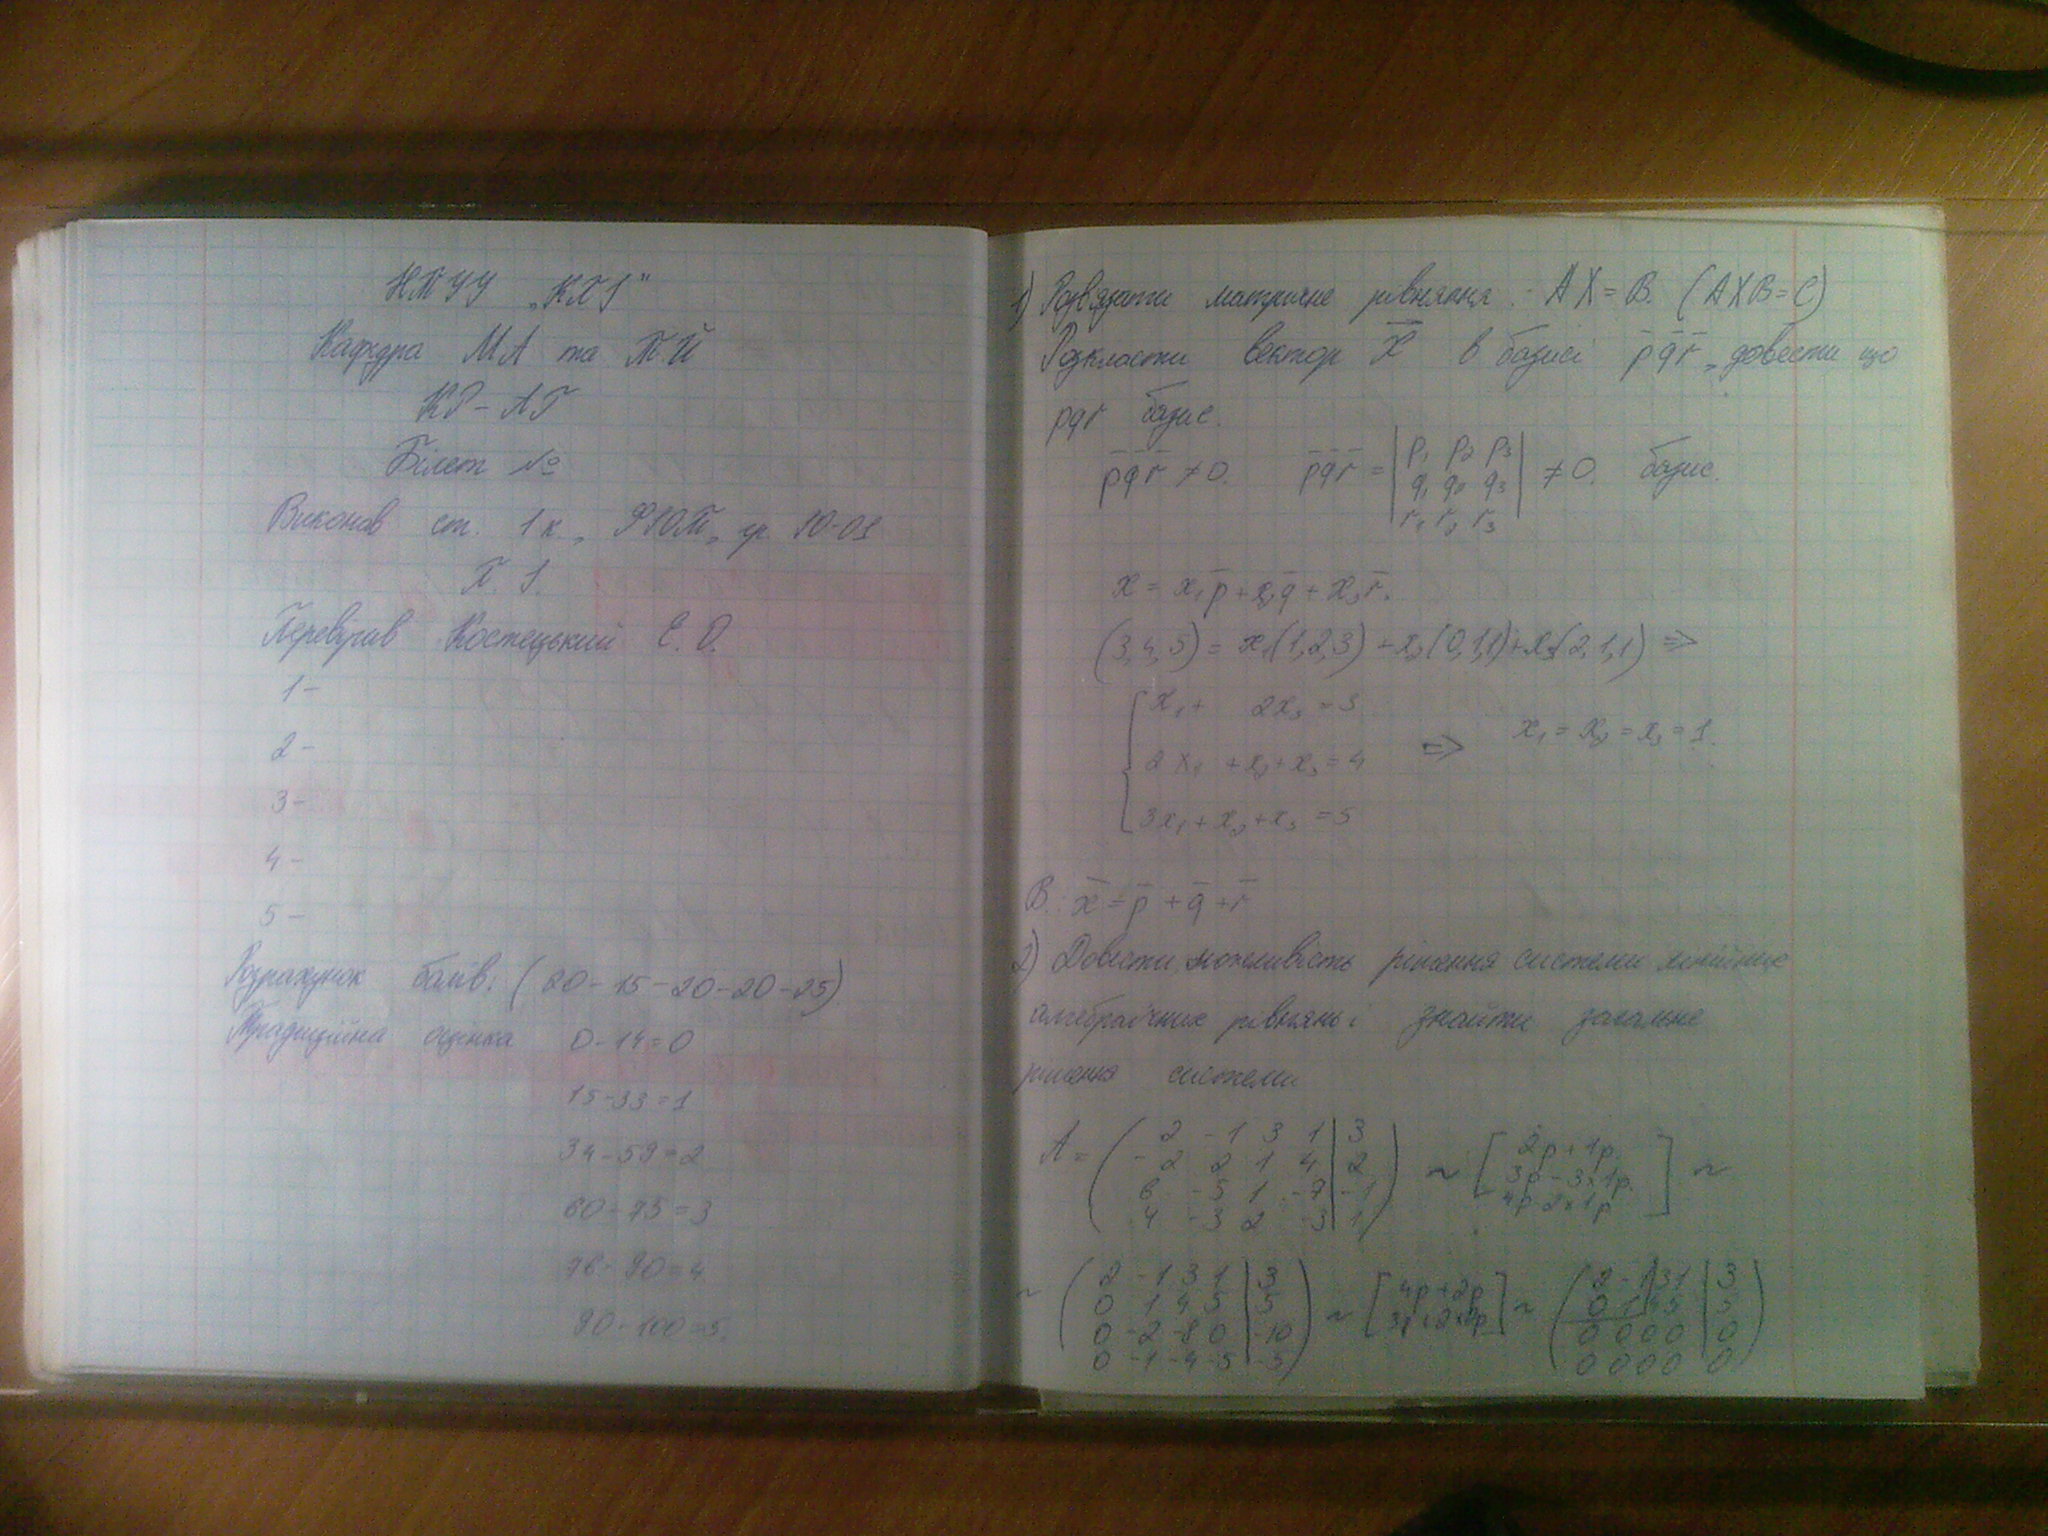 НТУУ „КПІ"
Кафедра МА та ТЙ
КР-АГ
Білет №
Виконав ст. 1 к., ФЮТ, гр. Ю-01
П. І.
Перевірив Костецький Є. О.
1 -
2 -
3 -
4 -
5 -
Розрахунок балів: (20-15-20-20-25)
Традиційна оцінка 0-14=0
15-33=1
34-59=2
60-75=3
76-90=4
90-100=5.
1) Розв'язати матричне рівняння: AX=B. (AXB=C)
Розкласти вектор x̅ в базисі p̅ q̅ r̅, довести що
pqr базис.
p̅ q̅ r̅ ≠0. p̅ q̅ r̅ = | p₁ p₂ p₃ | ≠ 0. базис.
| q₁ q₂ q₃ |
| r₁ r₂ r₃ |
x = x₁p̅ + x₂q̅ + x₃r̅.
(3,4,5) = x₁(1,2,3) + x₂(0,1,1) + x₃(2,1,1) ⇒
{ x₁ + 2x₃ = 3
2x₁ + x₂ + x₃ = 4 ⇒ x₁ = x₂ = x₃ = 1.
3x₁ + x₂ + x₃ = 5
В: x̅ = p̅ + q̅ + r̅
2) Довести можливість рішення системи лінійних
алгебраїчних рівнянь і знайти загальне
рішення системи
A = ( 2 -1 3 1 | 3 ) ~ [ 2р+1р ] ~
( -2 2 1 4 | 2 ) [ 3р-3×1р. ]
( 6 -5 1 -7 | -1 ) [ 4р-2×1р ]
( 4 -3 2 -3 | 1 )
~ ( 2 -1 3 1 | 3 ) ~ [ 4р+2р ] ~ ( 2 -1 3 1 | 3 )
( 0 1 4 5 | 5 ) [ 3р+2×2р ] ( 0 1 4 5 | 5 )
( 0 -2 -8 0 | -10 ) ( 0 0 0 0 | 0 )
( 0 -1 -4 -5 | -5 ) ( 0 0 0 0 | 0 )